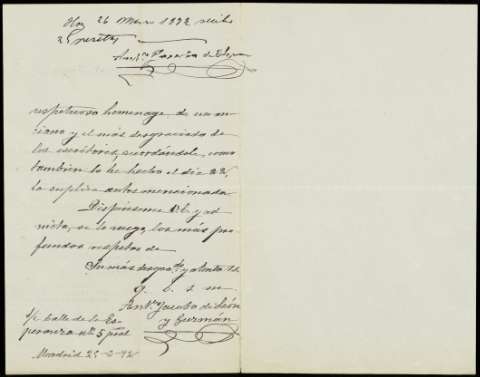 Hoy 26 Marzo 1892 recibi
25 pesetas
respetuoso homenage de un an
ciano y el más desgraciado de
los escritores, recordándole, como
tambien lo he hecho el dia 22,
la suplica antes mencionada
Dispénseme Vd. y ad
mita, se lo ruego, los más pro
fundos respetos de
Su más desgdo. y atento S.S.
q. b. s. m.
Anto. Jacobo de León
y Guzmán
s/c calle de la Es-
peranza nº 5 pral
Madrid 25-3-92